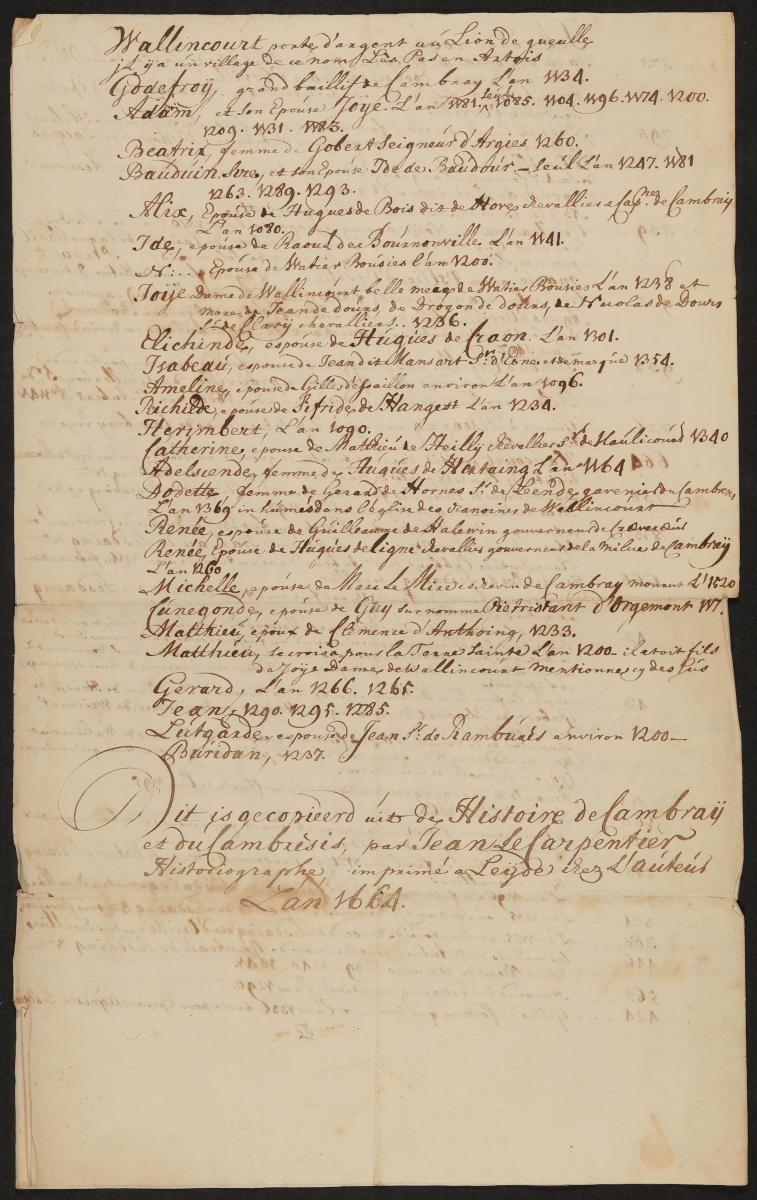 Wallincourt porte d'argent au Lion de gueulle
jl ya un village de ce nom Lès Pas en Artois
Godefroy, grand baillif de Cambray L'an 1134.
Adam, et son Epouse Joye. L'an 1181. seul 1085. 1104. 1196. 1174. 1200.
1209. 1131. 1183.
Beatrix, femme de Gobert Seigneur d'Argies 1260.
Bauduin Sire, et son Epouse Ide de Baudour - seul L'an 1247. 1181
1263. 1289. 1293.
Alix, Epouse de Hugues de Bois dit de Hove chevallier de Cambray
L'an 1080.
Ide, epouse de Raoul de Bournonville. L'an 1141.
N: .. Epouse de Watier Bousies l'an 1200.
Joye Dame de Wallincourt belle mere de Watier Bousies L'an 1238 et
mere de Jean de dours, de Drogon de dours, de Nicolas de Dours
Sr. de Clary chevalliers.. 1236.
Elichinde, espouse de Hugues de Craon. L'an 1301.
Isabeau, espouse de Jean dit Mansart Sr. d'Esne et de marque 1354.
Ameline, epouse de Gilles de faillon environ L'an 1096.
Richilde, epouse de Sifride de Hangest L'an 1234.
Herimbert, L'an 1090.
Catherine, epouse de Matthieu de Heilly chevallier Sr. de Haulicourd 1340
Adelscende, femme de Hugues de Hertaing L'an 1164
Dodette, femme de Gerard de Hornes Sr. de Leende, gavenier du Cambres,
L'an 1369 inhumés dans l'église des chanoines de Wallincourt
Renée, espouse de Guilleaume de Halewin gouverneur de Crevecœur
Renée, Epouse de Hugues de Ligne chevallier gouverneur de la milice de Cambray
L'an 1260
Michelle, epouse de Marc Le Mire eschevin de Cambray mourut L' 1520
Cunegonde, epouse de Guy surnomme Pietristant d'Orgemont 117.
Matthieu, epoux de Clemence d'Anthoing, 1233.
Matthieu, se croisa pour la Terre Sainte L'an 1200 il etoit fils
de Joye Dame de Wallincourt mentionne cy dessus
Gerard, L'an 1266. 1265.
Jean, 1290. 1295. 1285.
Lutgarde, espouse de Jean Sr. de Rambures environ 1200 -
Buridan, 1237.
Dit is gecopieerd uit de Histoire de Cambray
et du Cambrésis, par Jean Le Carpentier
Historiographe, imprimé a Leyde chez L'auteur
Lan 1664.